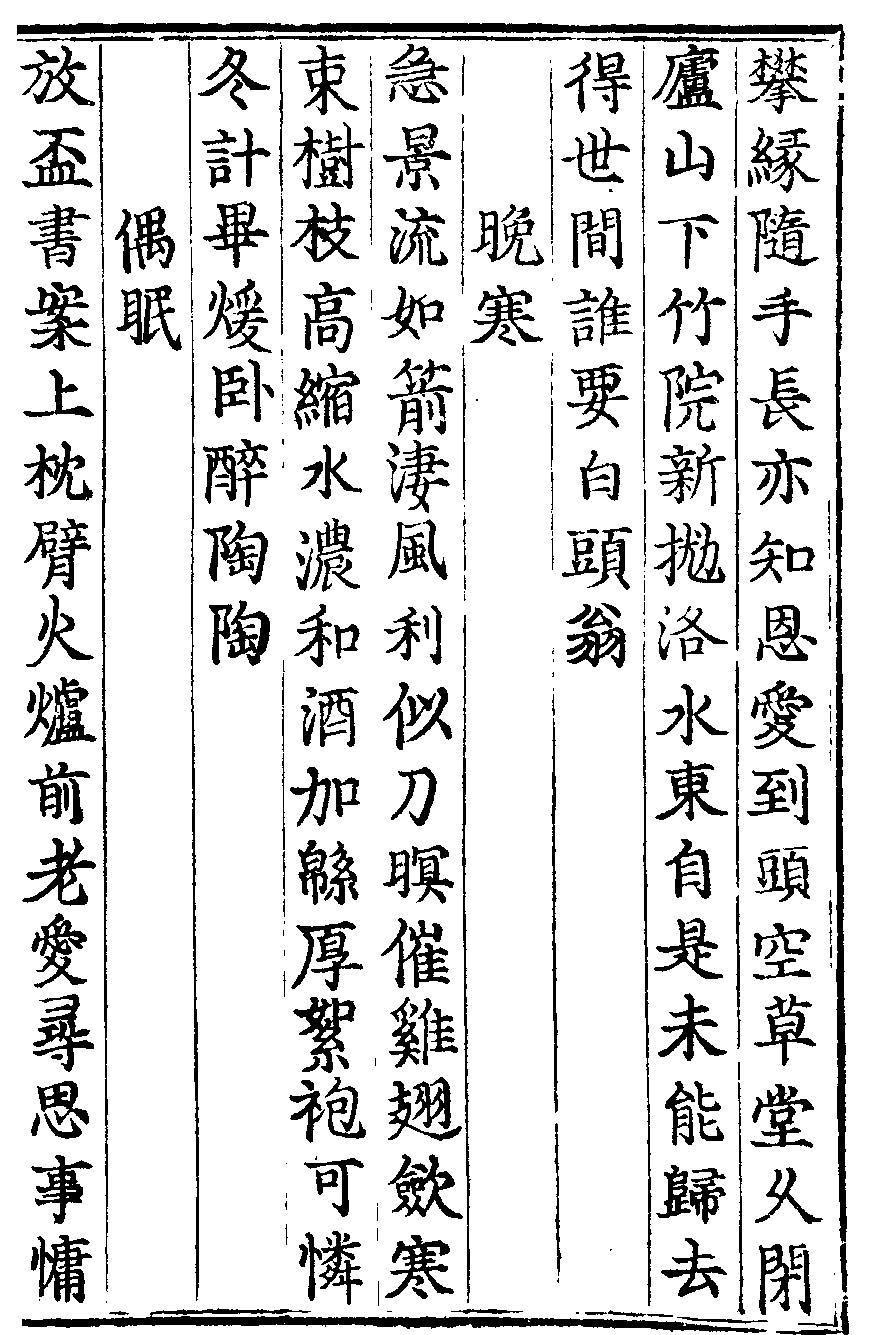 攀縁隨手長亦知恩愛到頭空草堂久閉
廬山下竹院新拋洛水東自是未能歸去
得世間誰要白頭翁
晚寒
急景流如箭淒風利似刀暝催雞翅斂寒
束樹枝高縮水濃和酒加緜厚絮袍可憐
冬計畢煖卧醉陶陶
偶眠
放盃書案上枕臂火爐前老愛尋思事慵